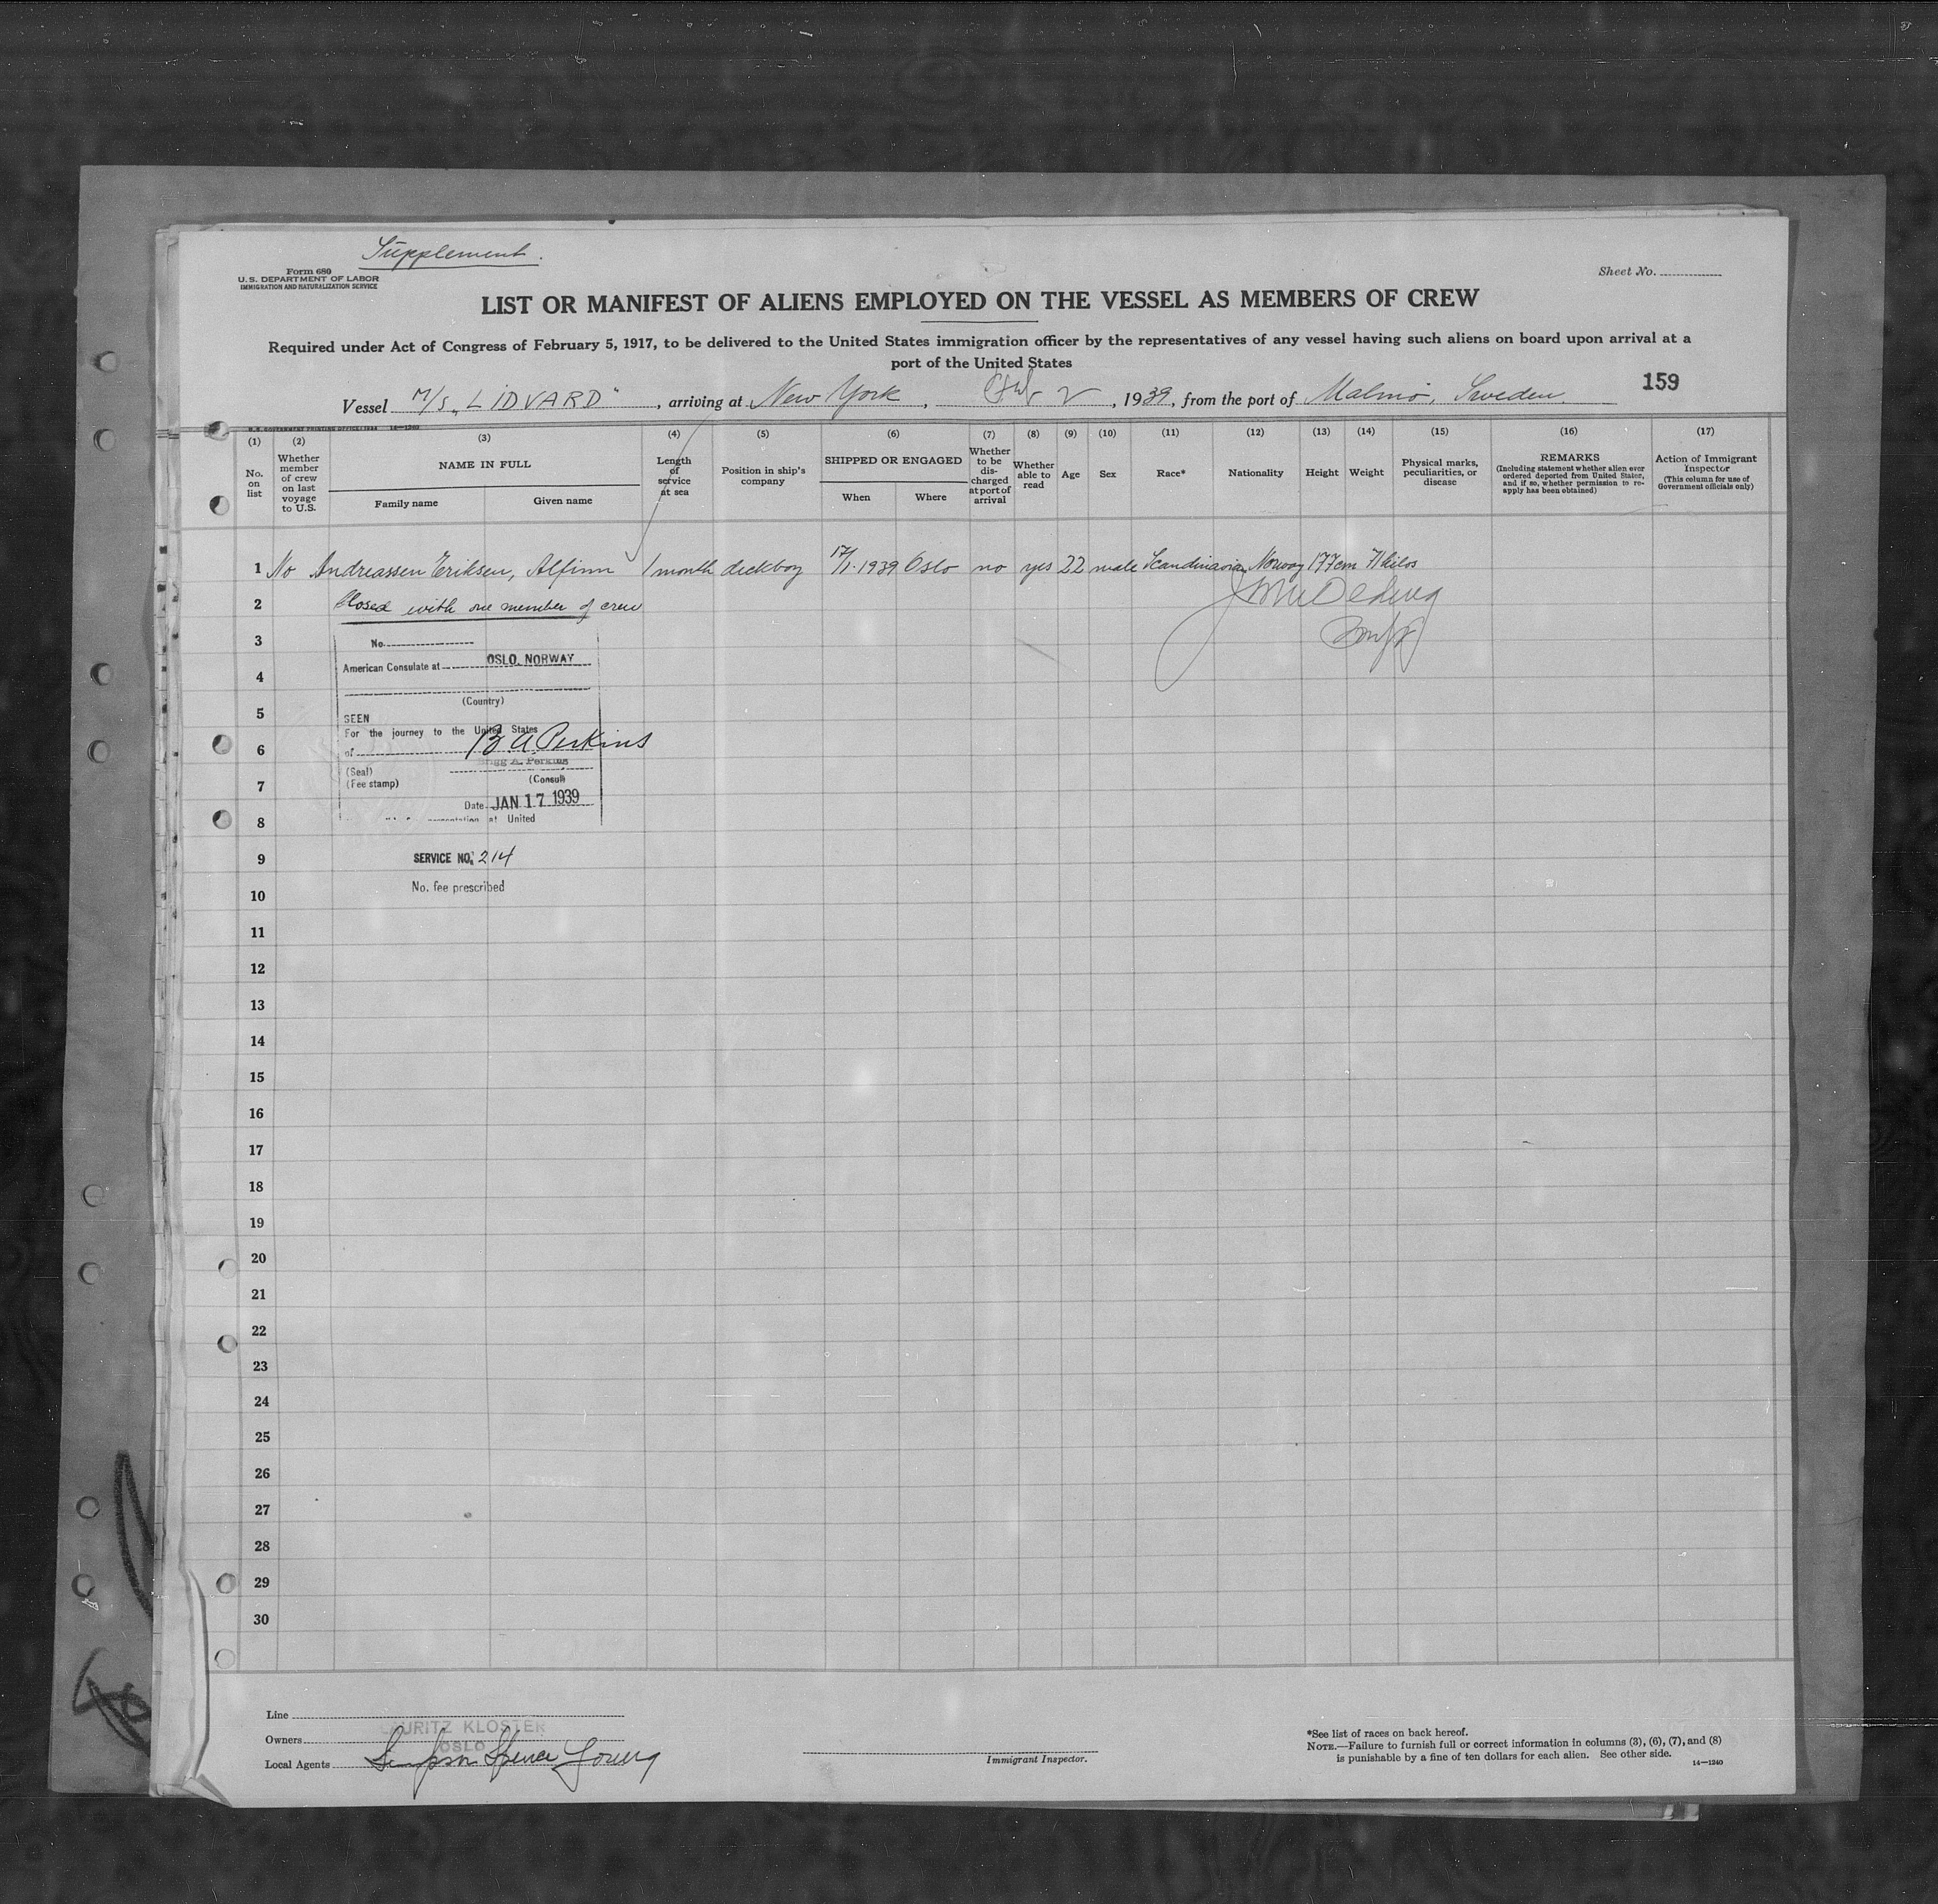 Supplement.
Form 680
U. S. DEPARTMENT OF LABOR
IMMIGRATION AND NATURALIZATION SERVICE
Sheet No.
LIST OR MANIFEST OF ALIENS EMPLOYED ON THE VESSEL AS MEMBERS OF CREW
Required under Act of Congress of February 5, 1917, to be delivered to the United States immigration officer by the representatives of any vessel having such aliens on board upon arrival at a
port of the United States
159
Vessel M/S „LIDVARD", arriving at New York, Feb 2, 1939, from the port of Malmö, Sweden.
U. S. GOVERNMENT PRINTING OFFICE: 14—1240
(1) (2) (3) (4) (5) (6) (7) (8) (9) (10) (11) (12) (13) (14) (15) (16) (17)
No. on list
Whether member of crew on last voyage to U.S.
NAME IN FULL
Family name
Given name
Length of service at sea
Position in ship's company
SHIPPED OR ENGAGED
When
Where
Whether to be discharged at port of arrival
Whether able to read
Age
Sex
Race*
Nationality
Height
Weight
Physical marks, peculiarities, or disease
REMARKS
(Including statement whether alien ever ordered deported from United States, and if so, whether permission to reapply has been obtained)
Action of Immigrant Inspector
(This column for use of Government officials only)
1 No Andreassen Eriksen, Alfinn 1 month deckboy 17/1.1939 Oslo no yes 22 male Scandinavian Norway 177cm 71 kilos
2 Closed with one member of crew
3
No.
American Consulate at OSLO, NORWAY
4
(Country)
5
SEEN
For the journey to the United States
6
of B. A. Perkins
Brigg A. Perkins
(Seal)
(Consul)
7
(Fee stamp)
Date JAN 17 1939
8
at United
9
SERVICE NO. 214
No. fee prescribed
10
11
12
13
14
15
16
17
18
19
20
21
22
23
24
25
26
27
28
29
30
Line
LAURITZ KLOSTER
Owners
OSLO
Local Agents Simpson Spence Young
Immigrant Inspector.
*See list of races on back hereof.
NOTE.—Failure to furnish full or correct information in columns (3), (6), (7), and (8)
is punishable by a fine of ten dollars for each alien. See other side.
14—1240